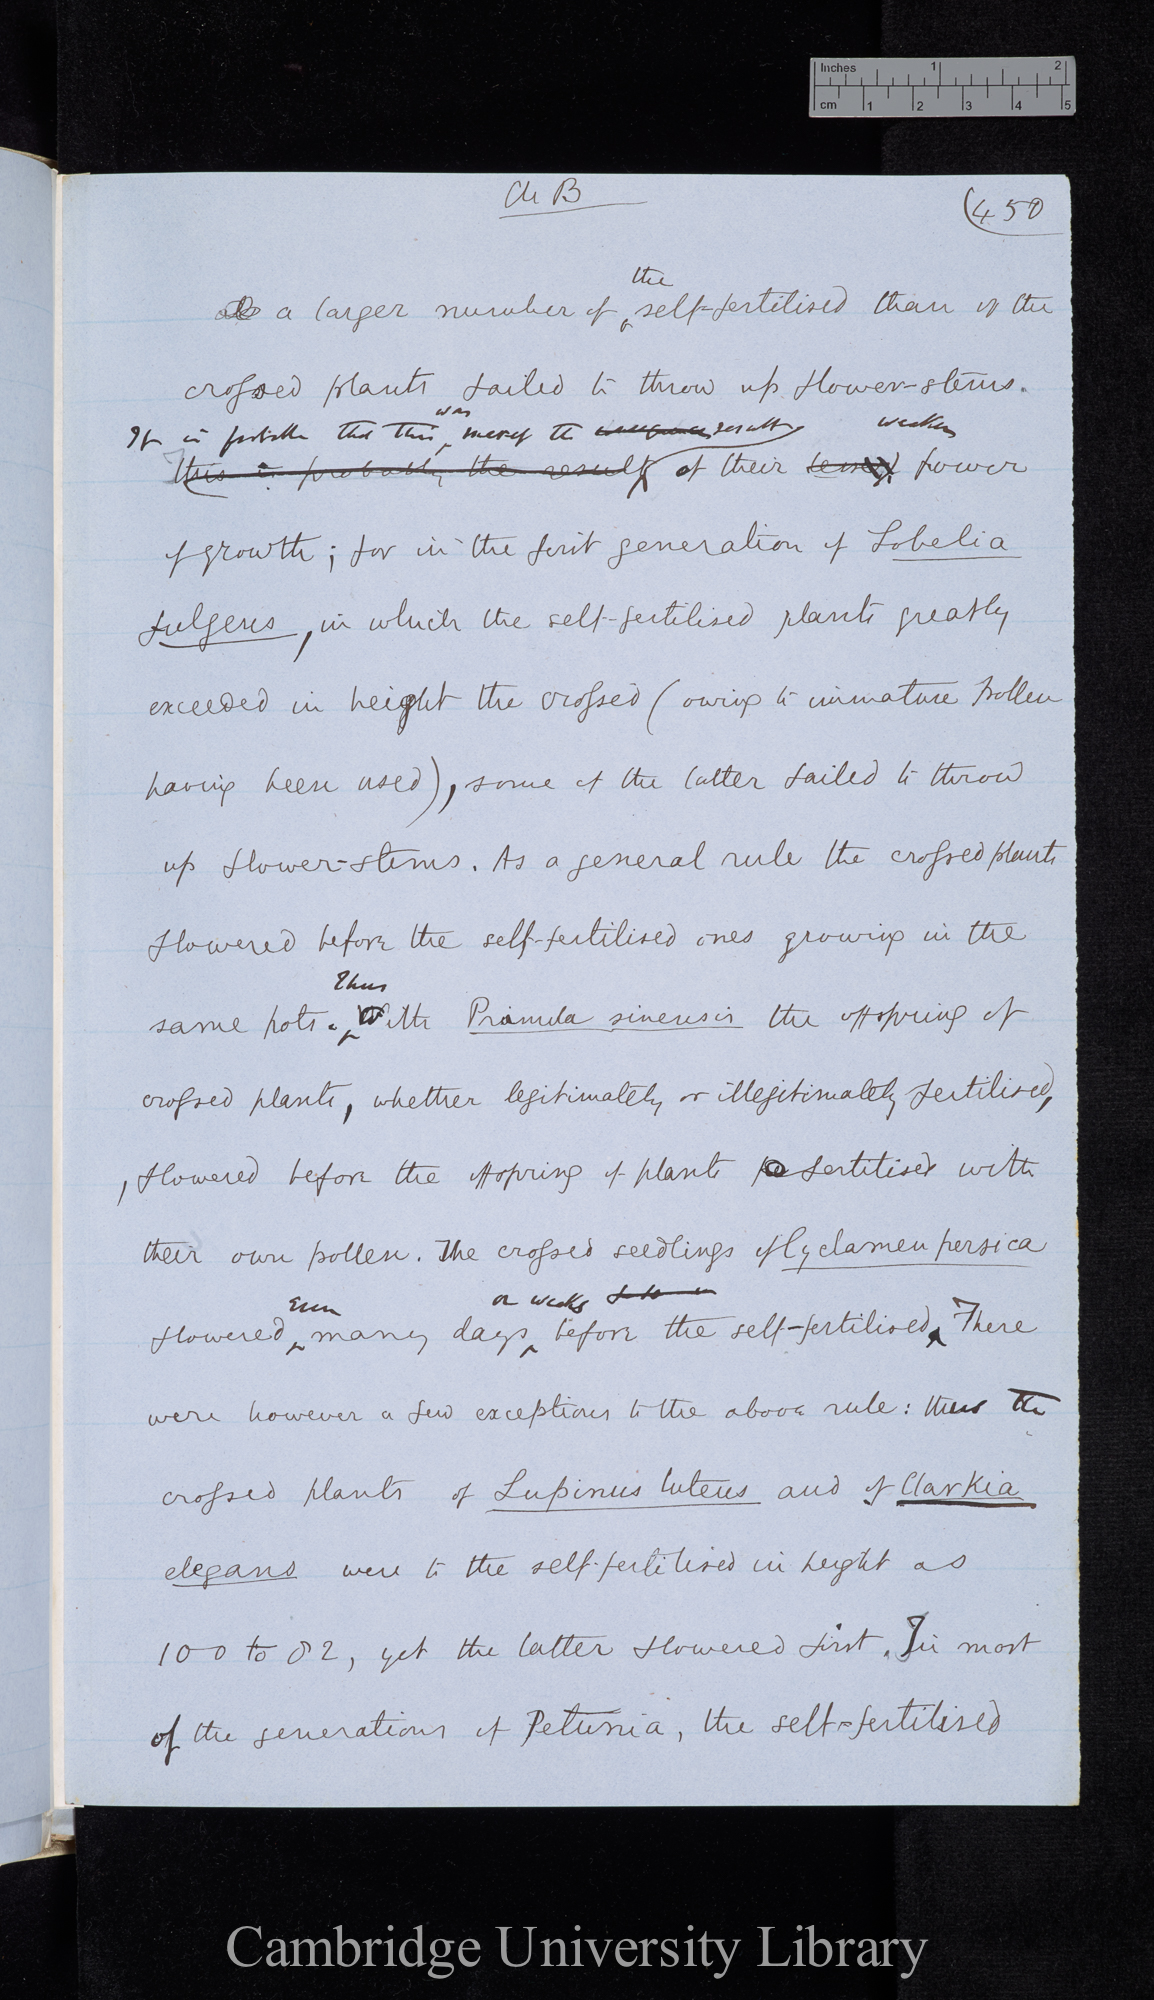 Inches 1 2
cm 1 2 3 4 5
Ch B
(450
the
a larger number of self-fertilised than of the
crossed plants failed to throw up flower-stems.
was
It is probable that this merely the result weaker
this is probably the result of their power
of growth; for in the first generation of Lobelia
fulgens, in which the self-fertilised plants greatly
exceeded in height the crossed (owing to immature pollen
having been used), some of the latter failed to throw
up flower-stems. As a general rule the crossed plants
flowered before the self-fertilised ones growing in the
Thus
same pots. With Primula sinensis the offspring of
crossed plants, whether legitimately or illegitimately fertilised,
, flowered before the offspring of plants fertilised with
their own pollen. The crossed seedlings of Cyclamen persica
even or weeks
flowered many days before the self-fertilised. There
were however a few exceptions to the above rule: thus the
crossed plants of Lupinus luteus and of Clarkia
elegans were to the self-fertilised in height as
100 to 82, yet the latter flowered first. In most
of the generations of Petunia, the self-fertilised
Cambridge University Library